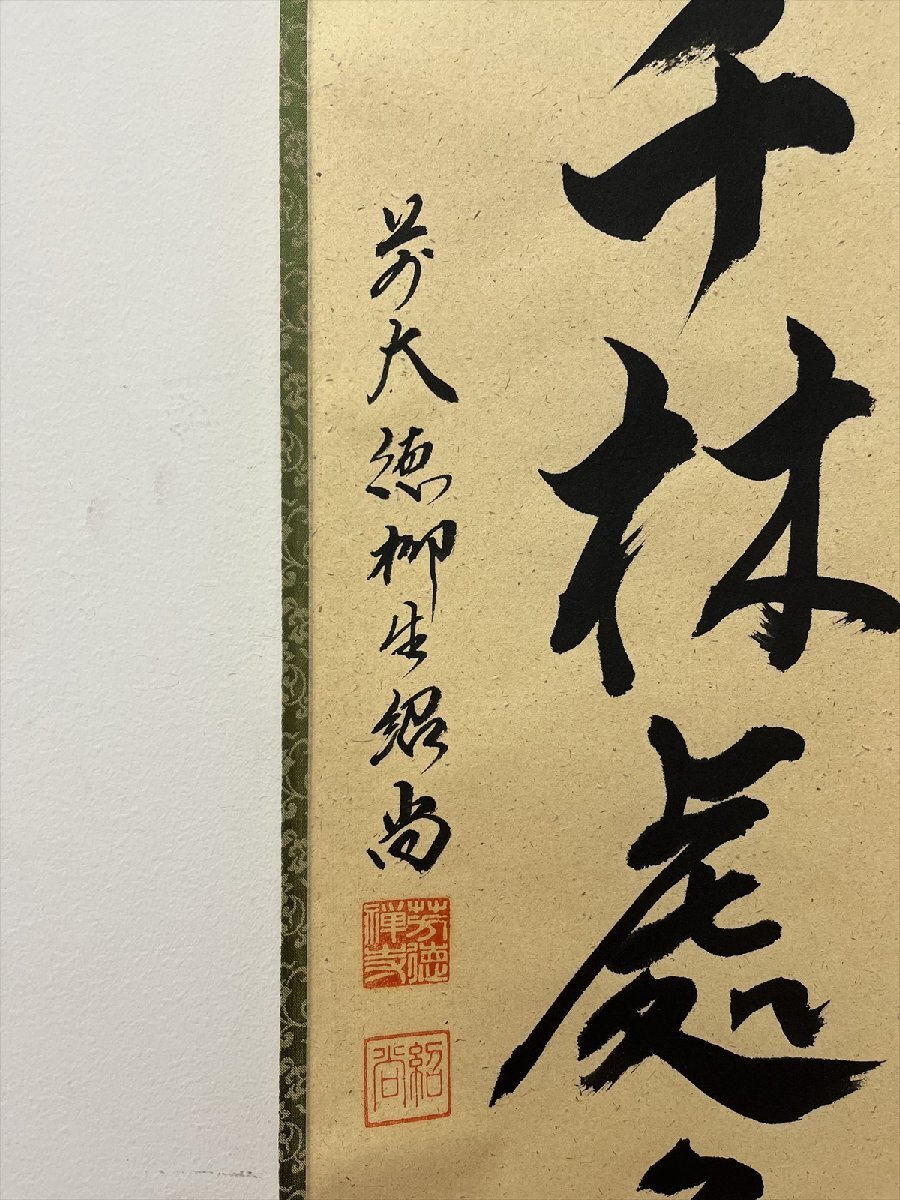 千林處
前大徳柳生紹尚
芳徳禅寺
紹尚